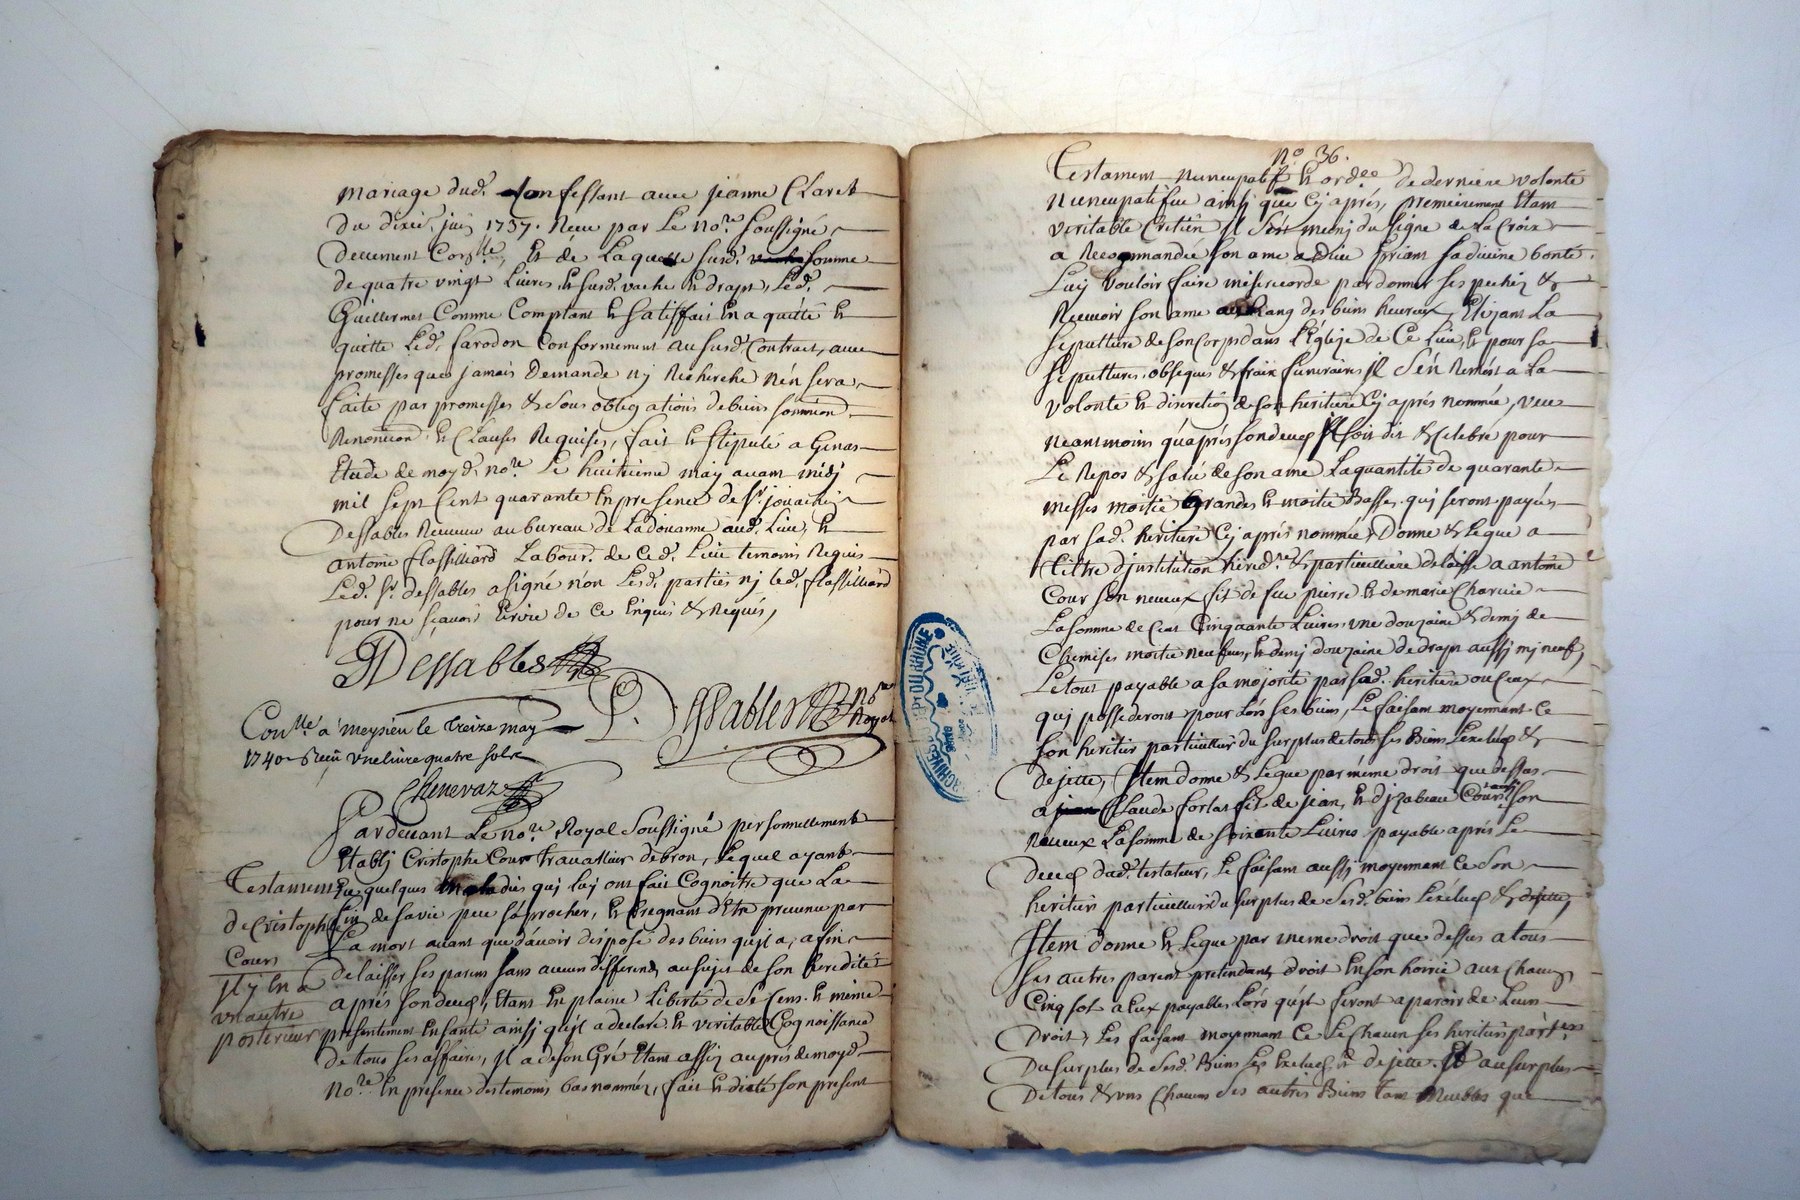 mariage dud. Confessant avec jeanne Claret
du dixie. juin 1737. Receu par Le no.re soussigné
deuement Con.lle, Et de Laquelle susd. somme
de quatre vingt Livres, Et susd. vache Et draps, Led.
Guillermet Comme Comptant Et satisfait En a quitté Et
quitte Led. farodon Conformement au susd. Contract, avec
promesses que jamais Demande nj Recherche N'en sera
faite par promesses & sous obligations de biens soumion.
Renontion. Et Clauses Requises, fait Et stipulé a Genas
Etude de moyd. no.re Le huitieme may avant midj
mil sept Cent quarante En presence de Sr. jouachin
Dessables Receveur au bureau de La douanne aud. Lieu, Et
antoine flassilliard Labour. de Ced. Lieu temoins Requis
Led. Sr. dessables a signé non Lesd. parties nj Led. flassilliard
pour ne sçavoir Ecrire de Ce Enquis & Requis,
JDessables
P. Dessables no.re Royal
Con.lle á meysieu le treize may
1740 Receu une livre quatre sols
Chenevaz
Pardevant Le no.re Royal Soussigné personnellement
Etablj Cristophe Cour travailleur debron, Lequel ayant
Testament
Eu quelques maladies quj luj ont fait Cognoitre que La
de Cristophe
fin de sa vie peu s'aprocher, Et Cregnant d'Etre prevenu par
La mort avant que d'avoir disposé des biens qu'jl a, afin
Cours
de laisser ses parens sans aucun differend, au sujet de son heredité
jl y En a
aprés son deces, Etant En plaine Liberté de Se sens Et méme
un autre
presentement En santé ainsj qu'jl a declaré Et veritable Cognoissance
posterieur
de tous ses affaires, jl a de son Gré Etant assis auprés de moyd
no.re En presence des temoins bas nommés, fait Et dicté son present
N.o 36.
Testament Nuncupatif Et ord.ce de derniere volonté
Nuncupatifve ainsj que Cj aprés, premierement Etant
veritable Crétien jl S'ést munj du signe de La Croix
a Recommandée son ame a dieu priant sa divine bonté
Luj vouloir faire misericorde pardonner ses pechés &
Recevoir son ame au Rang des biens heureux, Elizant La
sepulture de son Corps dans L'église de Ce Lieu, Et pour sa
sepulture, obseques & fraix funeraires jl S'én Remét a La
volonté Et discretion de son heritiere Cj aprés nommée, veut
neantmoins qu'aprés son deces jl soit dit & Celebré pour
Le Repos & salut de son ame La quantité de quarante
messes moitié Grandes Et moitié Basses quj seront payées
par sad. heritiere Cj aprés nommée, Donne & Legue a
tiltre d'jnstitution hered.re & particuilliere delaisse a antoine
Cour son neveux fis de feu pierre Et de marie Charvie
La somme de Cent Cinquante Livres, une douzaine & demj de
Chemises moitié neufves, Et demj douzaine de draps aussj mj neufs,
Le tout payable a sa majorité par sad. heritiere ou Ceux
quj possederont pour Lors ses biens, Le faisant moyennant Ce
son heritier particuillier du surplus de tous ses Biens L'exclus &
dejette, Jtem donne & Legue par méme droit que dessus
a Claude fortat fis de jean, Et d'jzabeau Cour aussj son
neveux La somme de soixante Livres payable aprés Le
deces dud. testateur, Le faisant aussj moyennant Ce son
heritier particuillier du surplus de Sesd. biens L'exclus & dejette,
Jtem donne Et Legue par meme droit que dessus a tous
ses autres parens pretendants droit En son hoirie aux Chacun
Cinq sols a Eux payables Lors qu'jls feront aparoir de Leurs
Droit, Les faisant moyennant Ce Le Chacun ses heritiers part.ers
Du surplus de Sesd. Biens Les Exclus Et dejette. Et au surplus
De tous & uns Chacuns ses autres Biens tant Meubles que